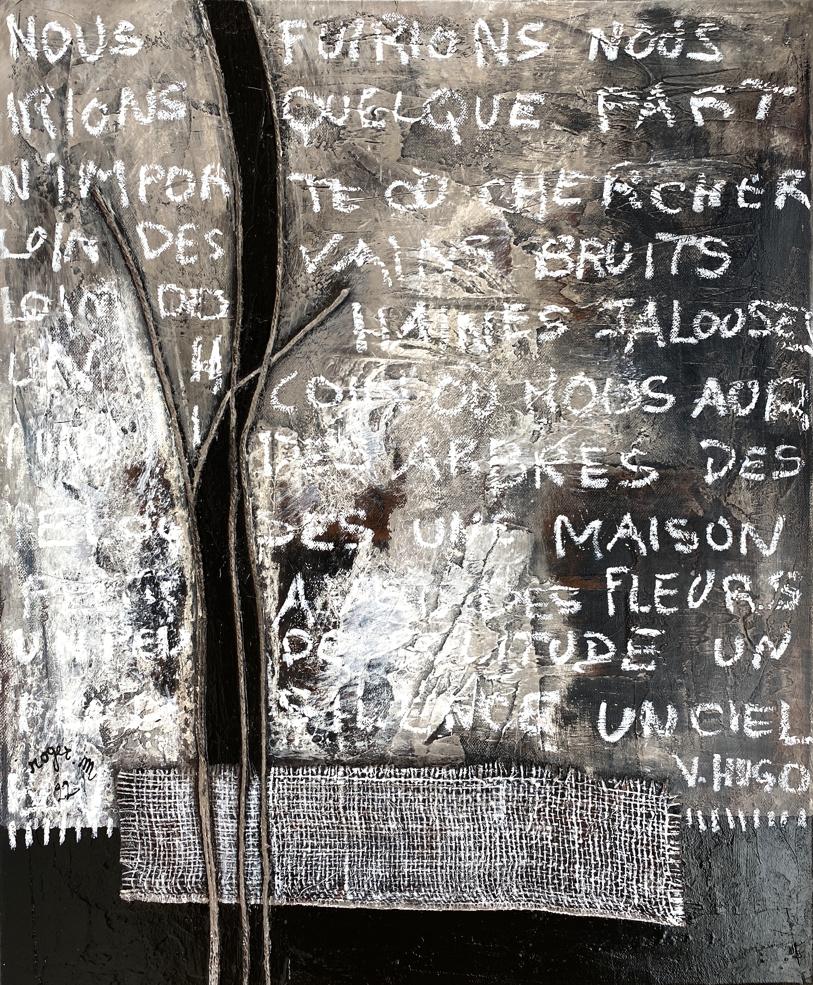 NOUS FUIRIONS NOUS
IRIONS QUELQUE PART
N'IMPOR TE OÙ CHERCHER
LOIN DES VAINS BRUITS
LOIN DD HAINES JALOUSES
UN H COIN OU NOUS AUR
I DES ARBRES DES
DES UNE MAISON
DES FLEURS
UN PEU DE SOLITUDE UN
SILENCE UN CIEL
V. HUGO
roger m